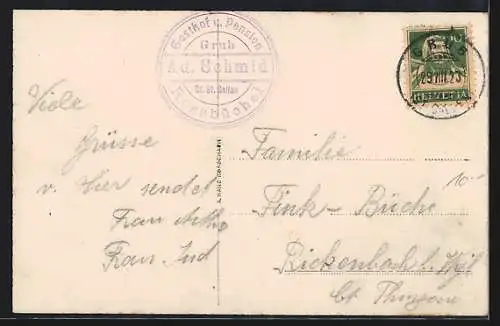 Gasthof u. Pension
Grub
Ad. Schmid
Kt. St. Gallen
10
HELVETIA
Viele
Grüsse
v. hier sendet
Frau
Frau
Familie
Fink-Büche
Rickenbach b. Wyl
Ct. Thurgau
10